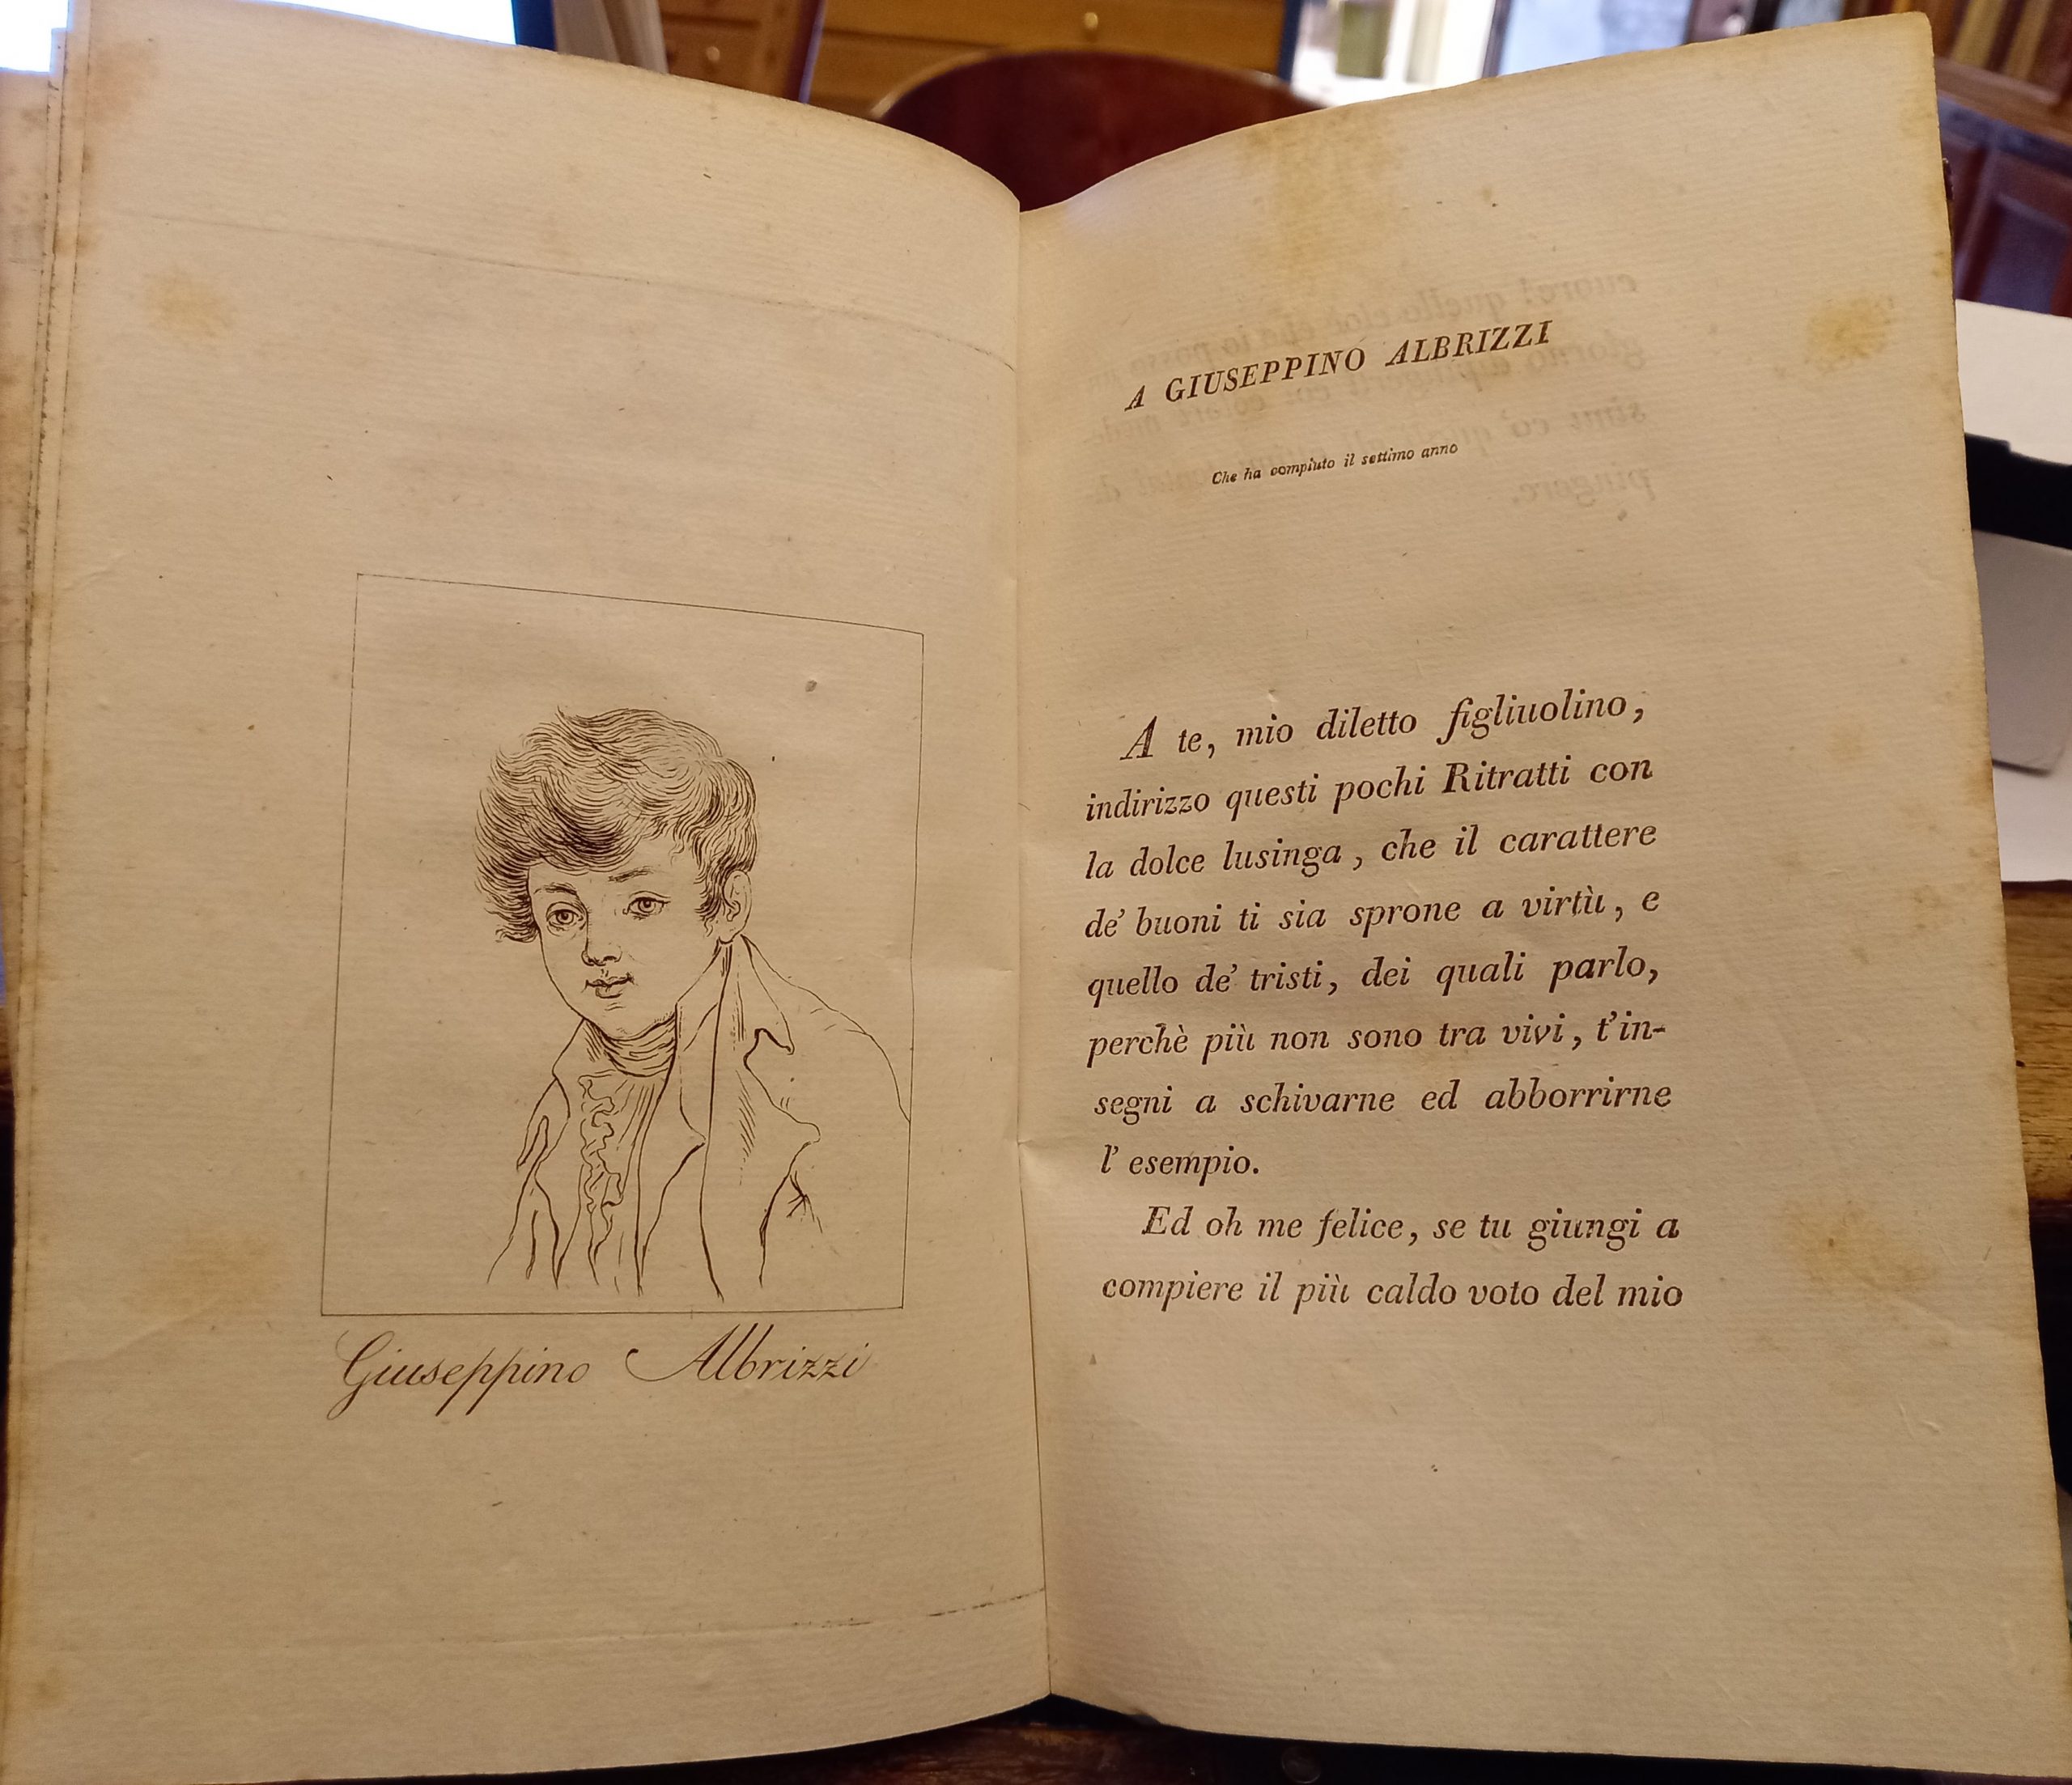 Giuseppino Albrizzi
A GIUSEPPINO ALBRIZZI
Che ha compiuto il settimo anno
A te, mio diletto figliuolino,
indirizzo questi pochi Ritratti con
la dolce lusinga, che il carattere
de' buoni ti sia sprone a virtù, e
quello de' tristi, dei quali parlo,
perchè più non sono tra vivi, t'in-
segni a schivarne ed abborrirne
l' esempio.
Ed oh me felice, se tu giungi a
compiere il più caldo voto del mio